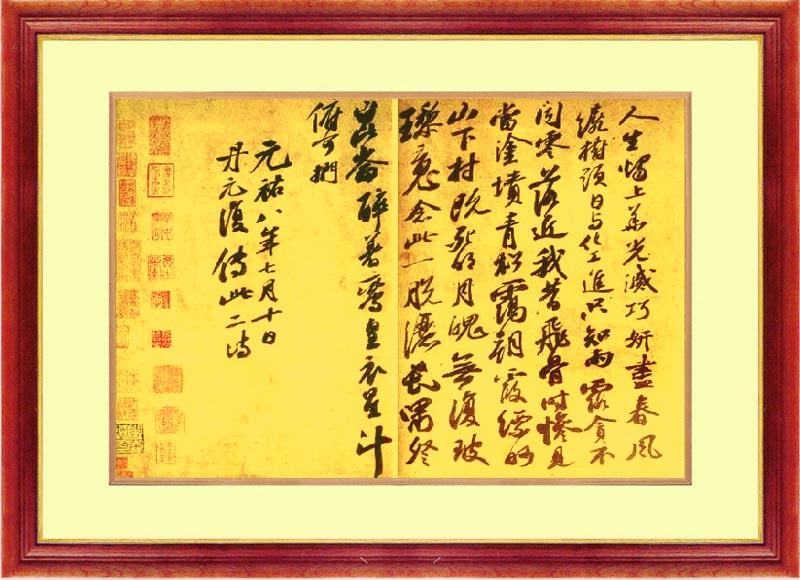 人生燭上華光滅巧妍盡春風
繞樹頭日与化工進只知雨露貪不
聞零落近我昔飛骨時慘見
當塗墳青松靄朝霞縹眇
山下村既死明月魄無復玻
瓈魂念此一脱灑長嘯登
崑崙醉著鸞皇衣星斗
俯可捫
元祐八年七月十日
丹元復傳此二詩